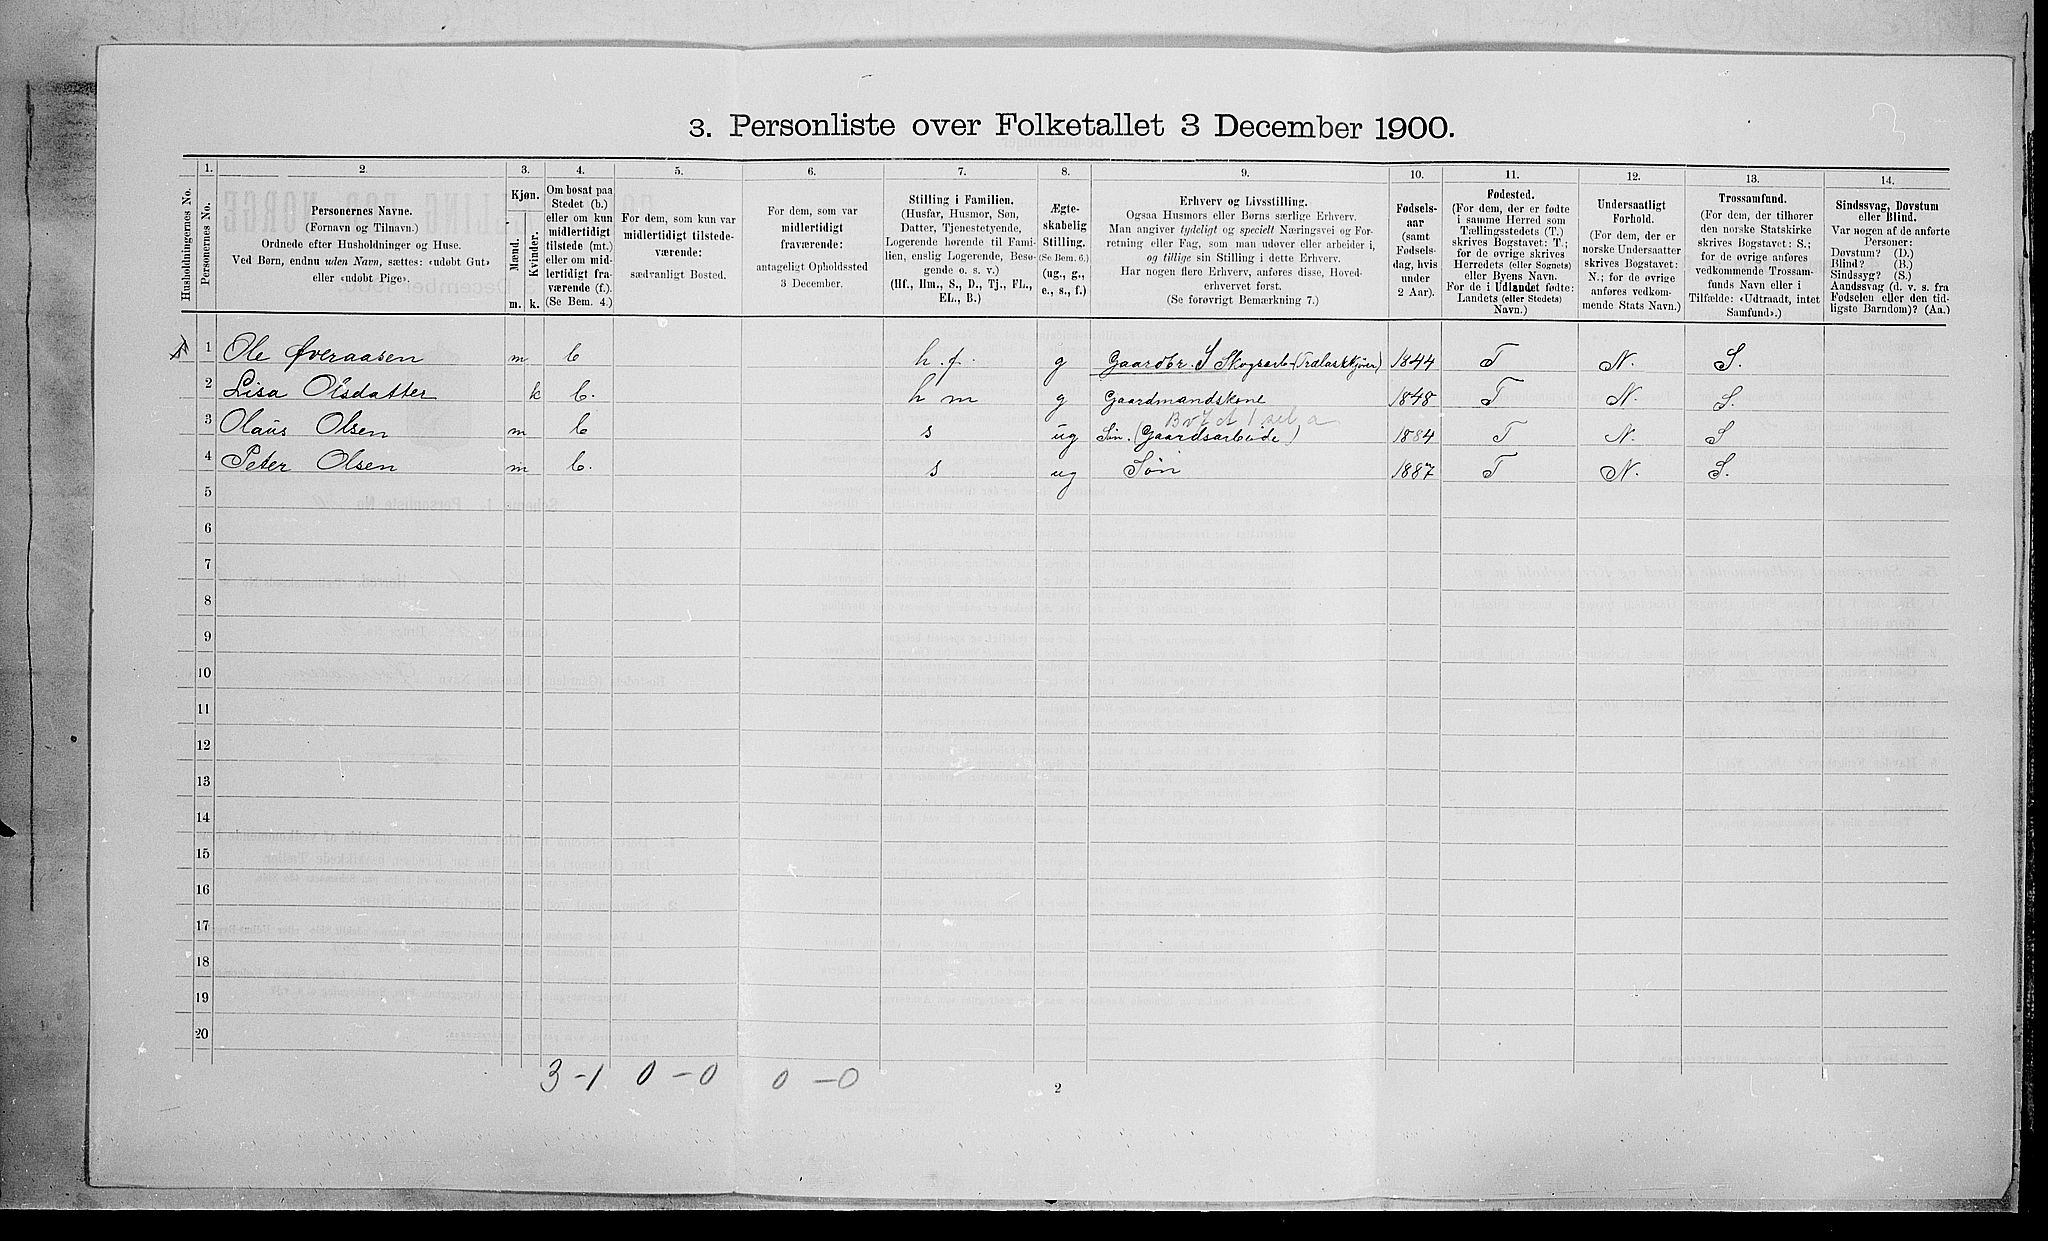 3. Personliste over Folketallet 3 December 1900.
1. 2. 3. 4. 5. 6. 7. 8. 9. 10. 11. 12. 13. 14.
Husholdningernes No.
Personernes No.
Personernes Navne.
(Fornavn og Tilnavn.)
Ordnede efter Husholdninger og Huse.
Ved Børn, endnu uden Navn, sættes: «udobt Gut»
eller «udobt Pige».
Kjøn.
Mænd. Kvinder.
m. k.
Om bosat paa
Stedet (b.)
eller om kun
midlertidigt
tilstede (mt.)
eller om mid-
lertidigt fra-
værende (f.)
(Se Bem. 4.)
For dem, som kun var
midlertidigt tilstede-
værende:
sædvanligt Bosted.
For dem, som var
midlertidigt
fraværende:
antageligt Opholdssted
3 December.
Stilling i Familien.
(Husfar, Husmor, Søn,
Datter, Tjenestetyende,
Logerende hørende til Fami-
lien, enslig Logerende, Besø-
gende o. s. v.)
(Hf., Hm., S., D., Tj., FL.,
EL., B.)
Ægte-
skabelig
Stilling.
(Se Bem. 6.)
(ug., g.,
e., s., f.)
Erhverv og Livsstilling.
Ogsaa Husmors eller Børns særlige Erhverv.
Man angiver tydeligt og specielt Næringsvei og For-
retning eller Fag, som man udøver eller arbeider i,
og tillige sin Stilling i dette Erhverv.
Har nogen flere Erhverv, anføres disse, Hoved-
erhvervet først.
(Se forøvrigt Bemærkning 7.)
Fødsels-
aar
(samt
Fødsels-
dag, hvis
under
2 Aar).
Fødested.
(For dem, der er fødte
i samme Herred som
Tællingsstedets (T.)
skrives Bogstavet: T.;
for de øvrige skrives
Herredets (eller Sognets)
eller Byens Navn.
For de i Udlandet fødte:
Landets (eller Stedets)
Navn.)
Undersaatligt
Forhold.
(For dem, der er
norske Undersaatter
skrives Bogstavet:
N.; for de øvrige
anføres vedkom-
mende Stats Navn.)
Trossamfund.
(For dem, der tilhører
den norske Statskirke
skrives Bogstavet: S.;
for de øvrige anføres
vedkommende Trossam-
funds Navn eller i
Tilfælde: «Udtraadt, intet
Samfund».)
Sindssvag, Døvstum
eller Blind.
Var nogen af de anførte
Personer:
Døvstum? (D.)
Blind? (B.)
Sindssyg? (S.)
Aandssvag (d. v. s. fra
Fødselen eller den tid-
ligste Barndom)? (Aa.)
1 Ole Øveraasen m b h.f. g Gaardbr. S Skogsarb. (Trælastkjører) 1844 T N. S.
2 Lisa Olsdatter k b. h m g Gaardmandskone 1848 T N. S.
3 Olaus Olsen m b s ug Søn. (Gaardsarbeide) 1884 T N. S
4 Peter Olsen m b. s ug Søn 1887 T N. S.
5
6
7
8
9
10
11
12
13
14
15
16
17
18
19
20
3-1 0-0 0-0
2